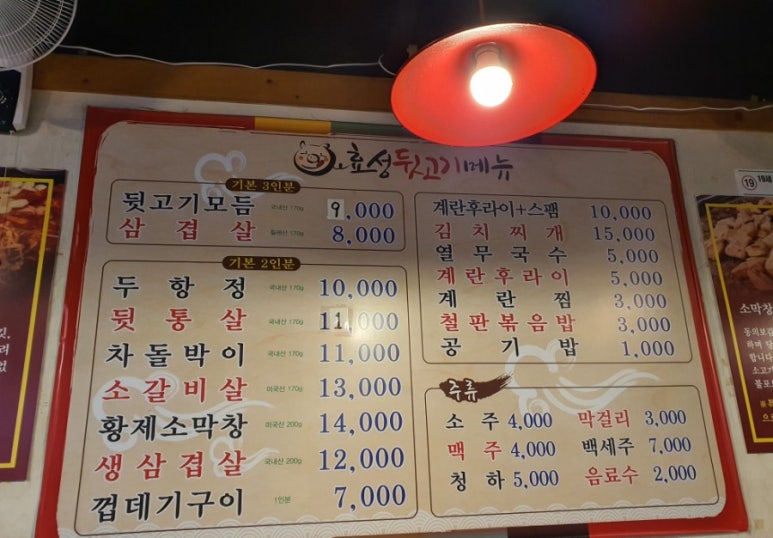 효성뒷고기메뉴
기본 3인분
뒷고기모듬 국내산 170g 9,000
삼겹살 칠레산 170g 8,000
기본 2인분
두항정 국내산 170g 10,000
뒷통살 국내산 170g 11,000
차돌박이 국내산 170g 11,000
소갈비살 미국산 170g 13,000
황제소막창 미국산 200g 14,000
생삼겹살 국내산 200g 12,000
껍데기구이 1인분 7,000
계란후라이+스팸 10,000
김치찌개 15,000
열무국수 5,000
계란후라이 5,000
계란찜 3,000
철판볶음밥 3,000
공기밥 1,000
주류
소주 4,000 막걸리 3,000
맥주 4,000 백세주 7,000
청하 5,000 음료수 2,000
19 19세
소막창
동의보감
하며 당
합니다
소고기
불포